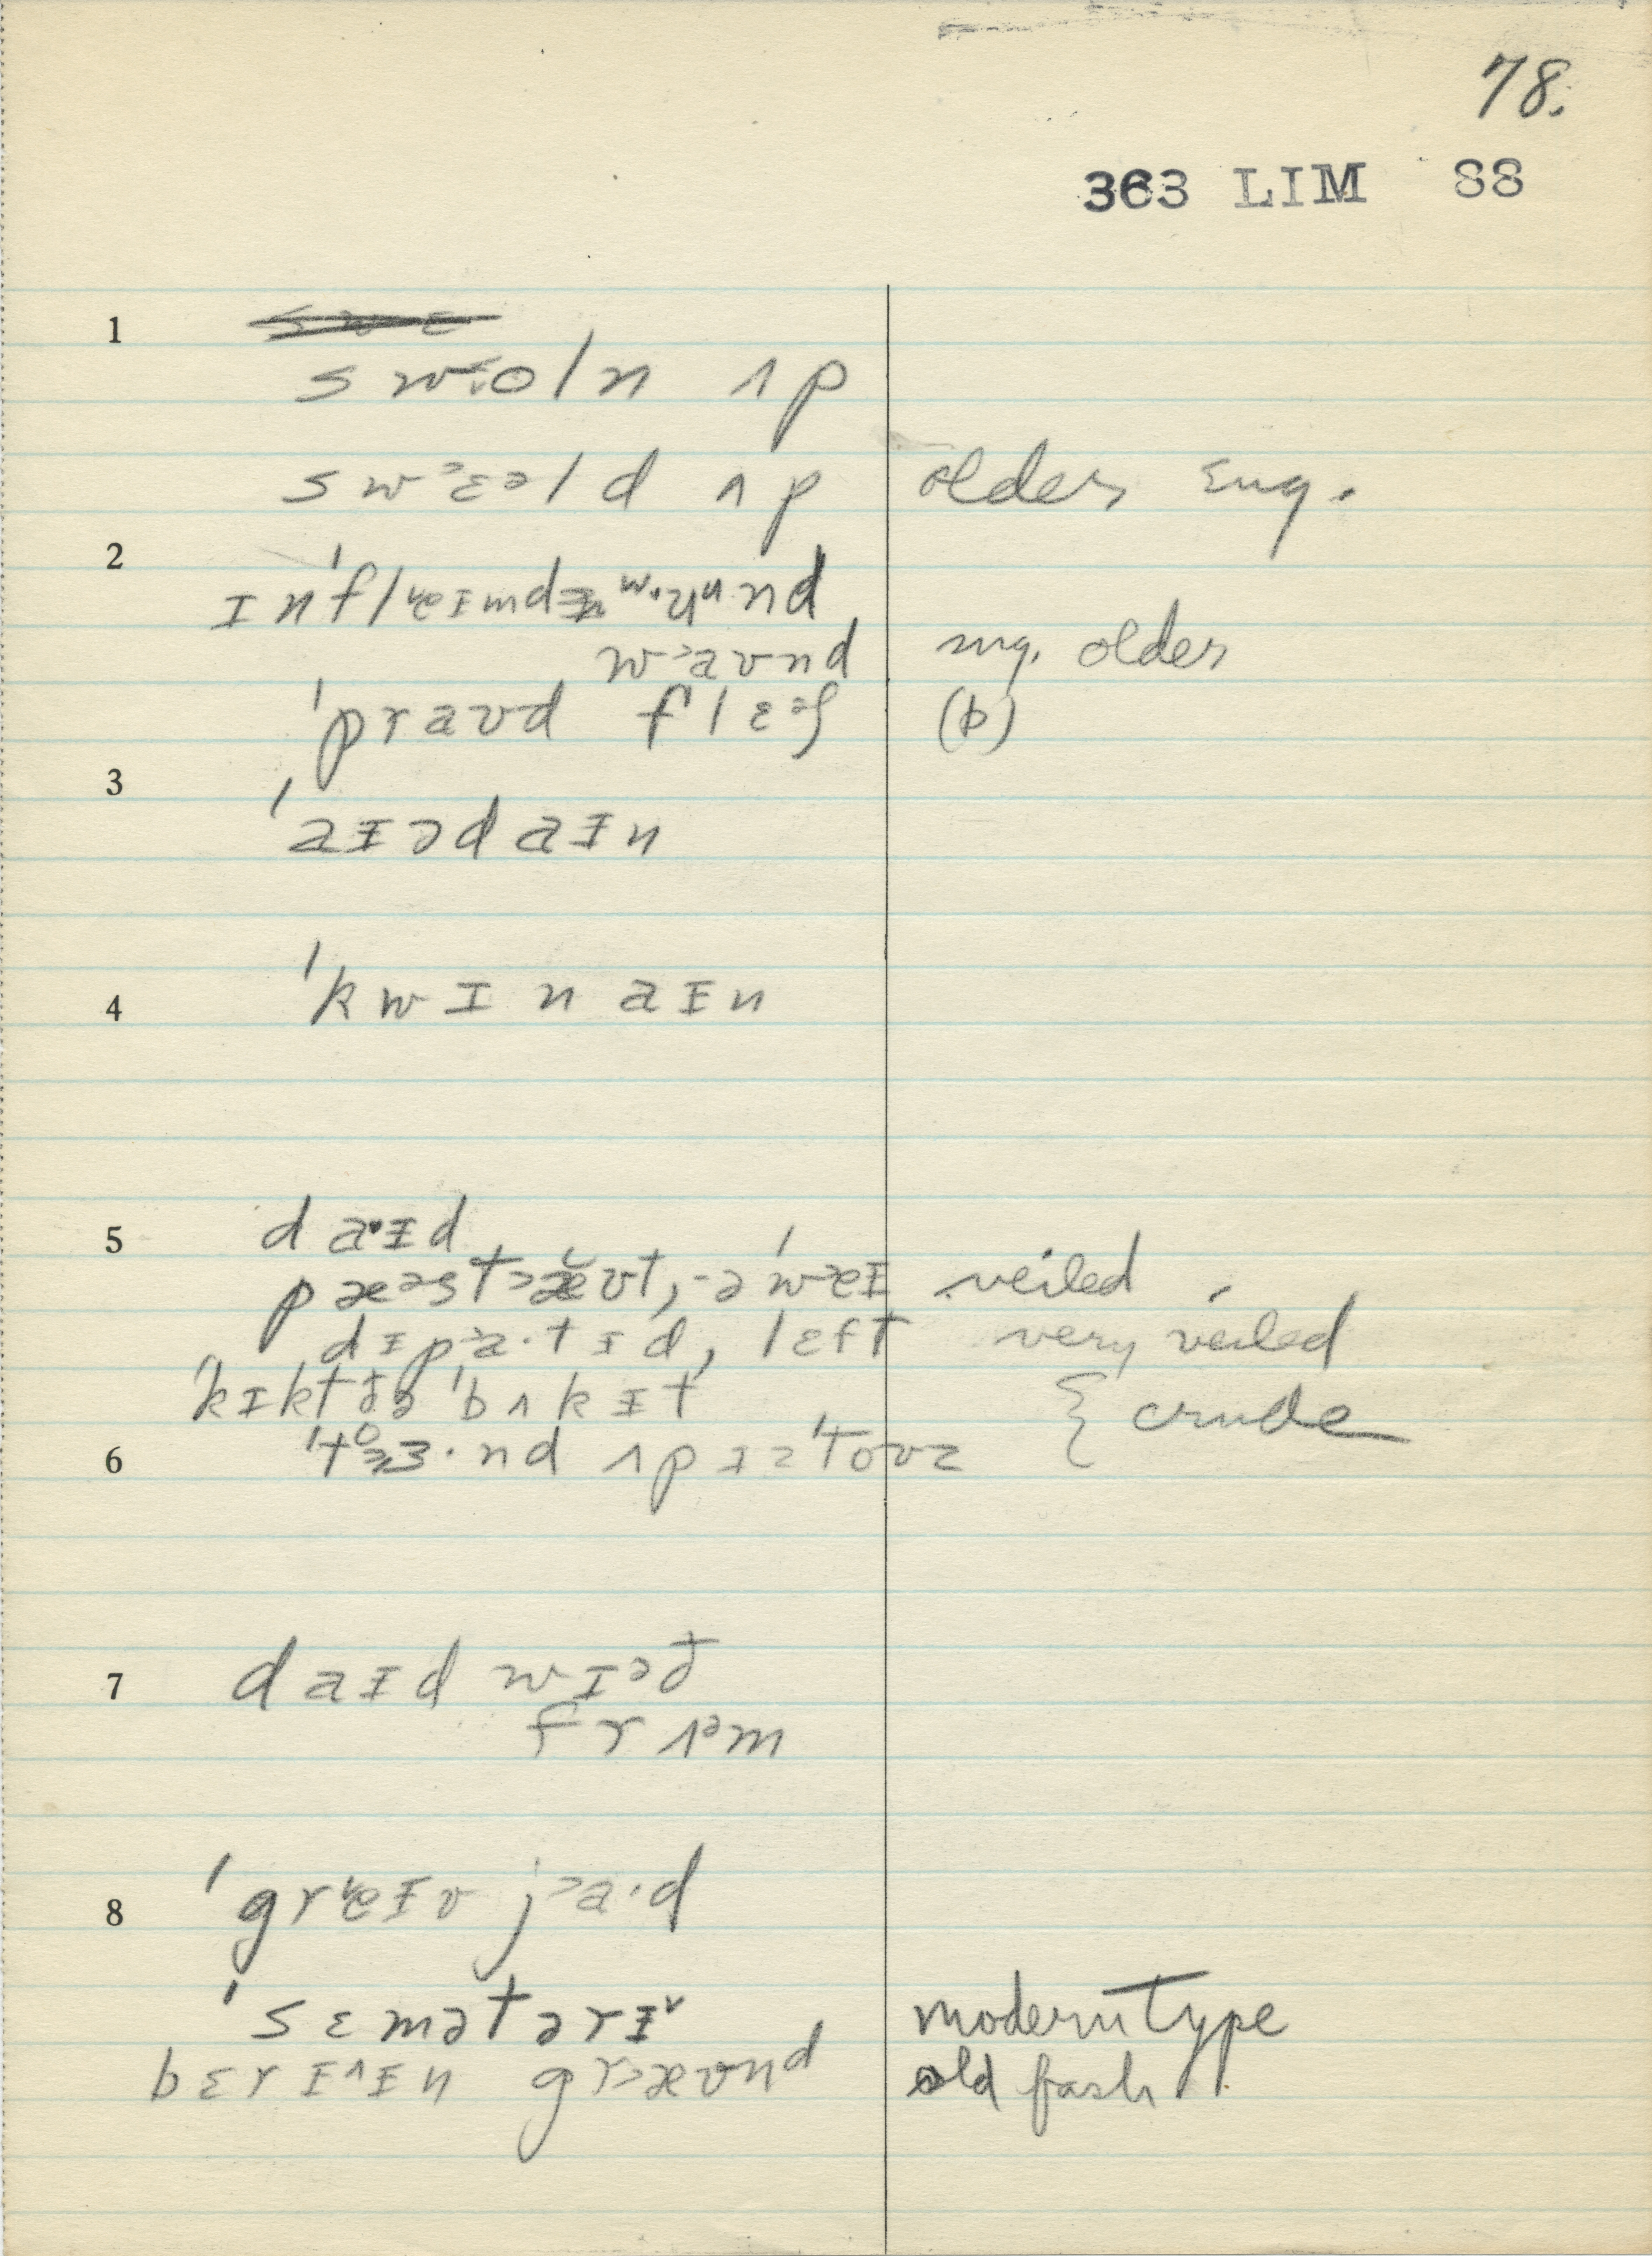 78.
363 LIM 88
1
swˑoln ʌp
swˀɛəld ʌp older Eng.
2
ɪn'flɐɪmd wˑuᵘnd
w˃aʊnd ng. older
'praʊd flɛᵊʃ (b)
3
'aɪədaɪn
4
'kwɪnaɪn
5
daˑɪd
pæəst˃æʊt, -ə'w˃eɪ veiled
dɪp˃a·tɪd, lɛft very veiled
'kɪkt ðə 'bʌkɪt { crude
6
'tɜ·nd ʌp ɪz 'toʊz
7
daɪd wɪᵊð
frʌᵊm
8
'greɪv j˃a·d
'sɛmətərɪ˅ modern type
bɛrɪ^ɪn gr˃æʊnd old fash.